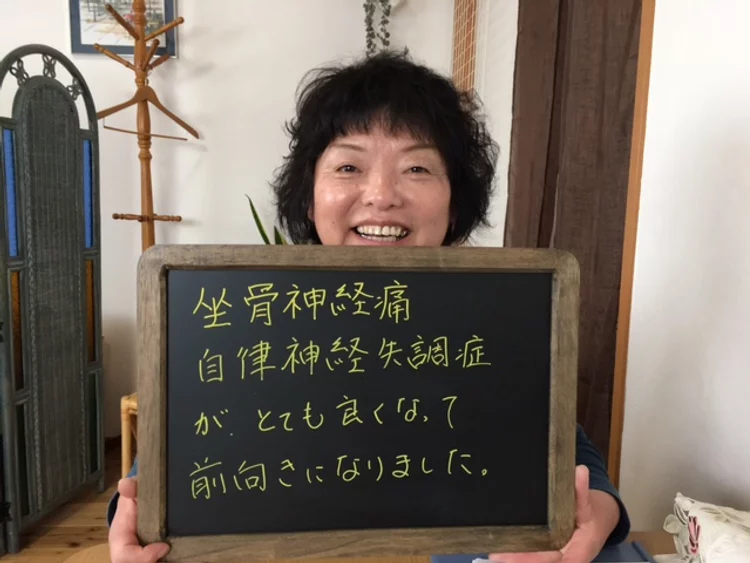 坐骨神経痛
自律神経失調症
が、とても良くなって
前向きになりました。